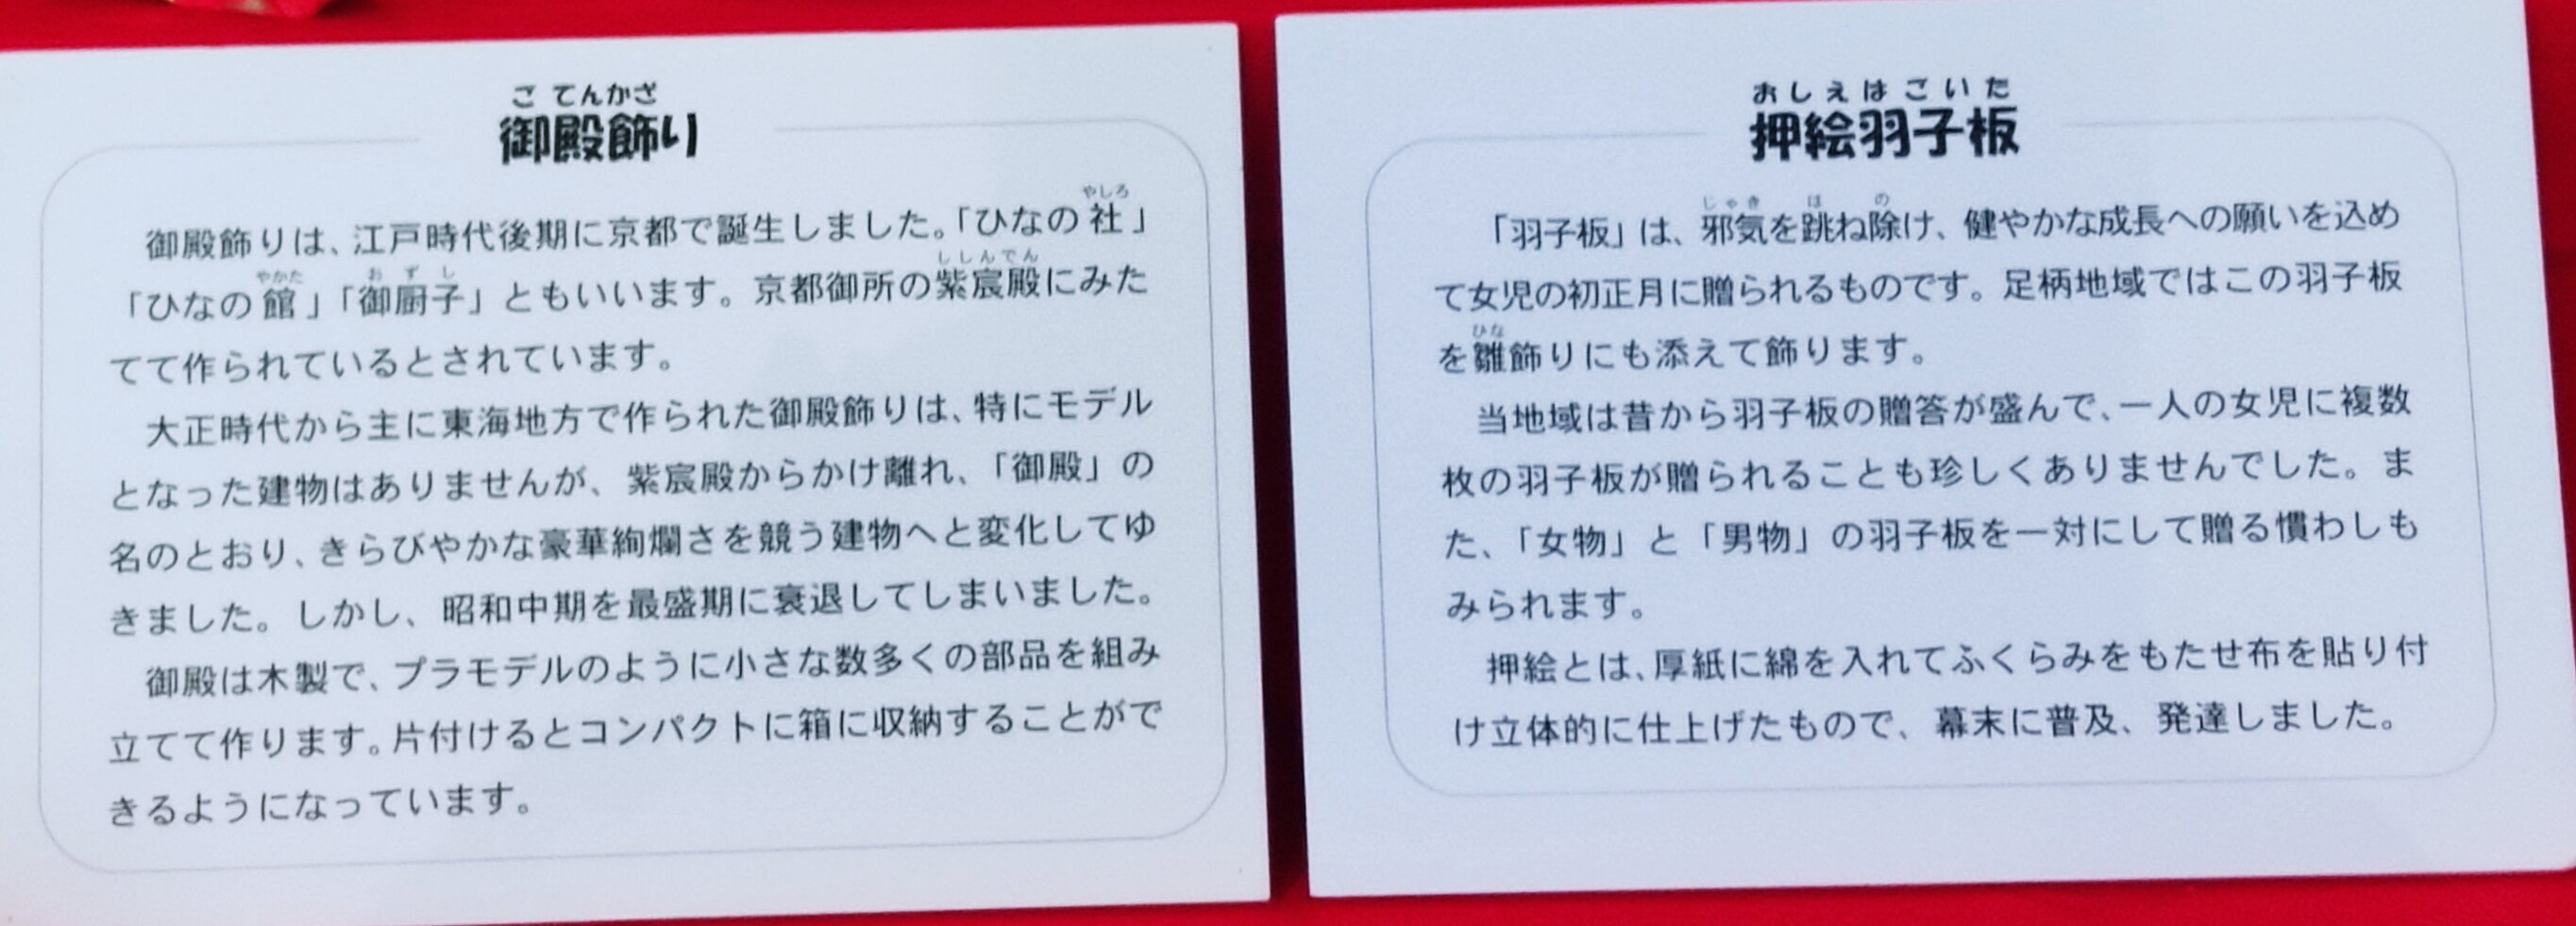 ごてんかざ
御殿飾り
御殿飾りは、江戸時代後期に京都で誕生しました。「ひなの社」
やしろ
「ひなの館」「御厨子」ともいいます。京都御所の紫宸殿にみた
やかた おずし ししんでん
てて作られているとされています。
大正時代から主に東海地方で作られた御殿飾りは、特にモデル
となった建物はありませんが、紫宸殿からかけ離れ、「御殿」の
名のとおり、きらびやかな豪華絢爛さを競う建物へと変化してゆ
きました。しかし、昭和中期を最盛期に衰退してしまいました。
御殿は木製で、プラモデルのように小さな数多くの部品を組み
立てて作ります。片付けるとコンパクトに箱に収納することがで
きるようになっています。
おしえはごいた
押絵羽子板
「羽子板」は、邪気を跳ね除け、健やかな成長への願いを込め
じゃき は の
て女児の初正月に贈られるものです。足柄地域ではこの羽子板
を雛飾りにも添えて飾ります。
ひな
当地域は昔から羽子板の贈答が盛んで、一人の女児に複数
枚の羽子板が贈られることも珍しくありませんでした。ま
た、「女物」と「男物」の羽子板を一対にして贈る慣わしも
みられます。
押絵とは、厚紙に綿を入れてふくらみをもたせ布を貼り付
け立体的に仕上げたもので、幕末に普及、発達しました。